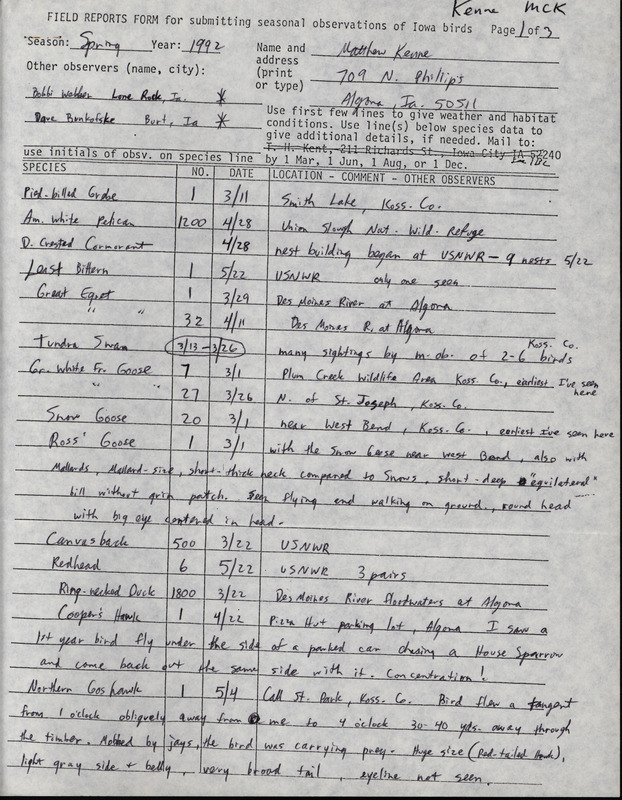 Kenne McK
FIELD REPORTS FORM for submitting seasonal observations of Iowa birds Page 1 of 3
Season: Spring Year: 1992
Name and address (print or type)
Matthew Kenne
709 N. Phillips
Algona, Ia. 50511
Other observers (name, city):
Bobbi Lone Rock, Ia. *
Dave Burt, Ia *
Use first few lines to give weather and habitat
conditions. Use line(s) below species data to
give additional details, if needed. Mail to:
T. H. Kent, 211 Richards St., Iowa City IA 52240
by 1 Mar, 1 Jun, 1 Aug, or 1 Dec.
use initials of obsv. on species line
SPECIES NO. DATE LOCATION - COMMENT - OTHER OBSERVERS
Pied-billed Grebe 1 3/11 Smith Lake, Koss. Co.
Am. White Pelican 1200 4/28 Union Slough Nat. Wild. Refuge
D. Crested Cormorant 4/28 nest building began at USNWR - 9 nests 5/22
Least Bittern 1 5/22 USNWR only one seen
Great Egret 1 3/29 Des Moines River at Algona
" " 32 4/11 Des Moines R. at Algona
Tundra Swan 3/13 - 3/26 many sightings by m. ob. of 2-6 birds Koss. Co.
Gr. White Fr. Goose 7 3/1 Plum Creek Wildlife Area Koss. Co., earliest I've seen here
" " 27 3/26 N. of St. Joseph, Koss. Co.
Snow Goose 20 3/1 near West Bend, Koss. Co., earliest I've seen here
Ross' Goose 1 3/1 with the Snow Geese near West Bend, also with
Mallards, Mallard-size, short-thick neck compared to Snows, short-deep "equilateral"
bill without grin patch. Seen flying and walking on ground, round head
with big eye centered in head.
Canvasback 500 3/22 USNWR
Redhead 6 5/22 USNWR 3 pairs
Ring-necked Duck 1800 3/22 Des Moines River floodwaters at Algona
Cooper's Hawk 1 4/22 Pizza Hut parking lot, Algona I saw a
1st year bird fly under the side of a parked car chasing a House Sparrow
and come back out the same side with it. Concentration!
Northern Goshawk 1 5/4 Call St. Park, Koss. Co. Bird flew a tangent
from 1 o'clock obliquely away from me to 4 o'clock 30-40 yds. away through
the timber. Mobbed by jays, the bird was carrying prey. Huge size (Red-tailed Hawk),
light gray side + belly, very broad tail, eyeline not seen.